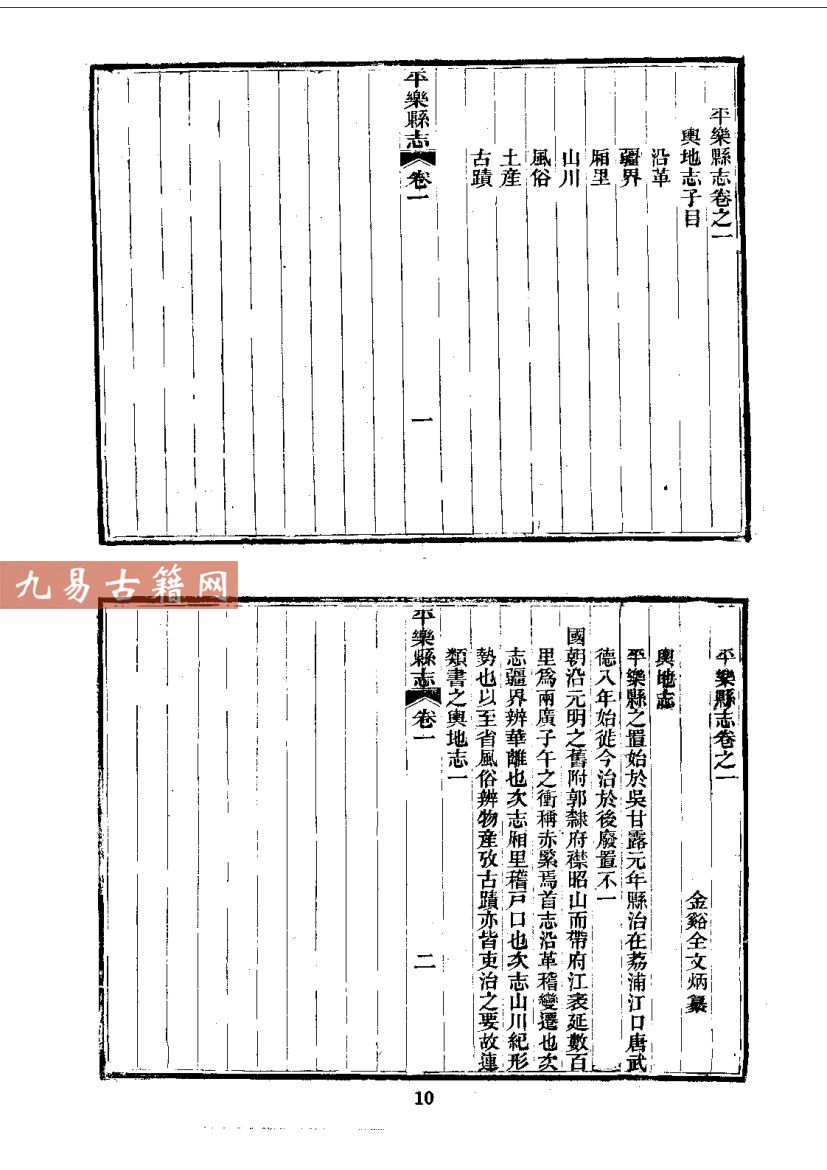 平樂縣志卷之一
輿地志子目
沿革
疆界
厢里
山川
風俗
土産
古蹟
平樂縣志 卷一 一
九易古籍网
平樂縣志卷之一
金谿全文炳纂
輿地志
平樂縣之置始於吳甘露元年縣治在荔浦江口唐武
德八年始徙今治於後廢置不一
國朝沿元明之舊附郭隸府襟昭山而帶府江袤延數百
里爲兩廣子午之衝稱赤緊焉首志沿革稽變遷也次
志疆界辨華離也次志厢里稽戸口也次志山川紀形
勢也以至省風俗辨物産攷古蹟亦皆吏治之要故連
類書之輿地志一
平樂縣志 卷一 二
10